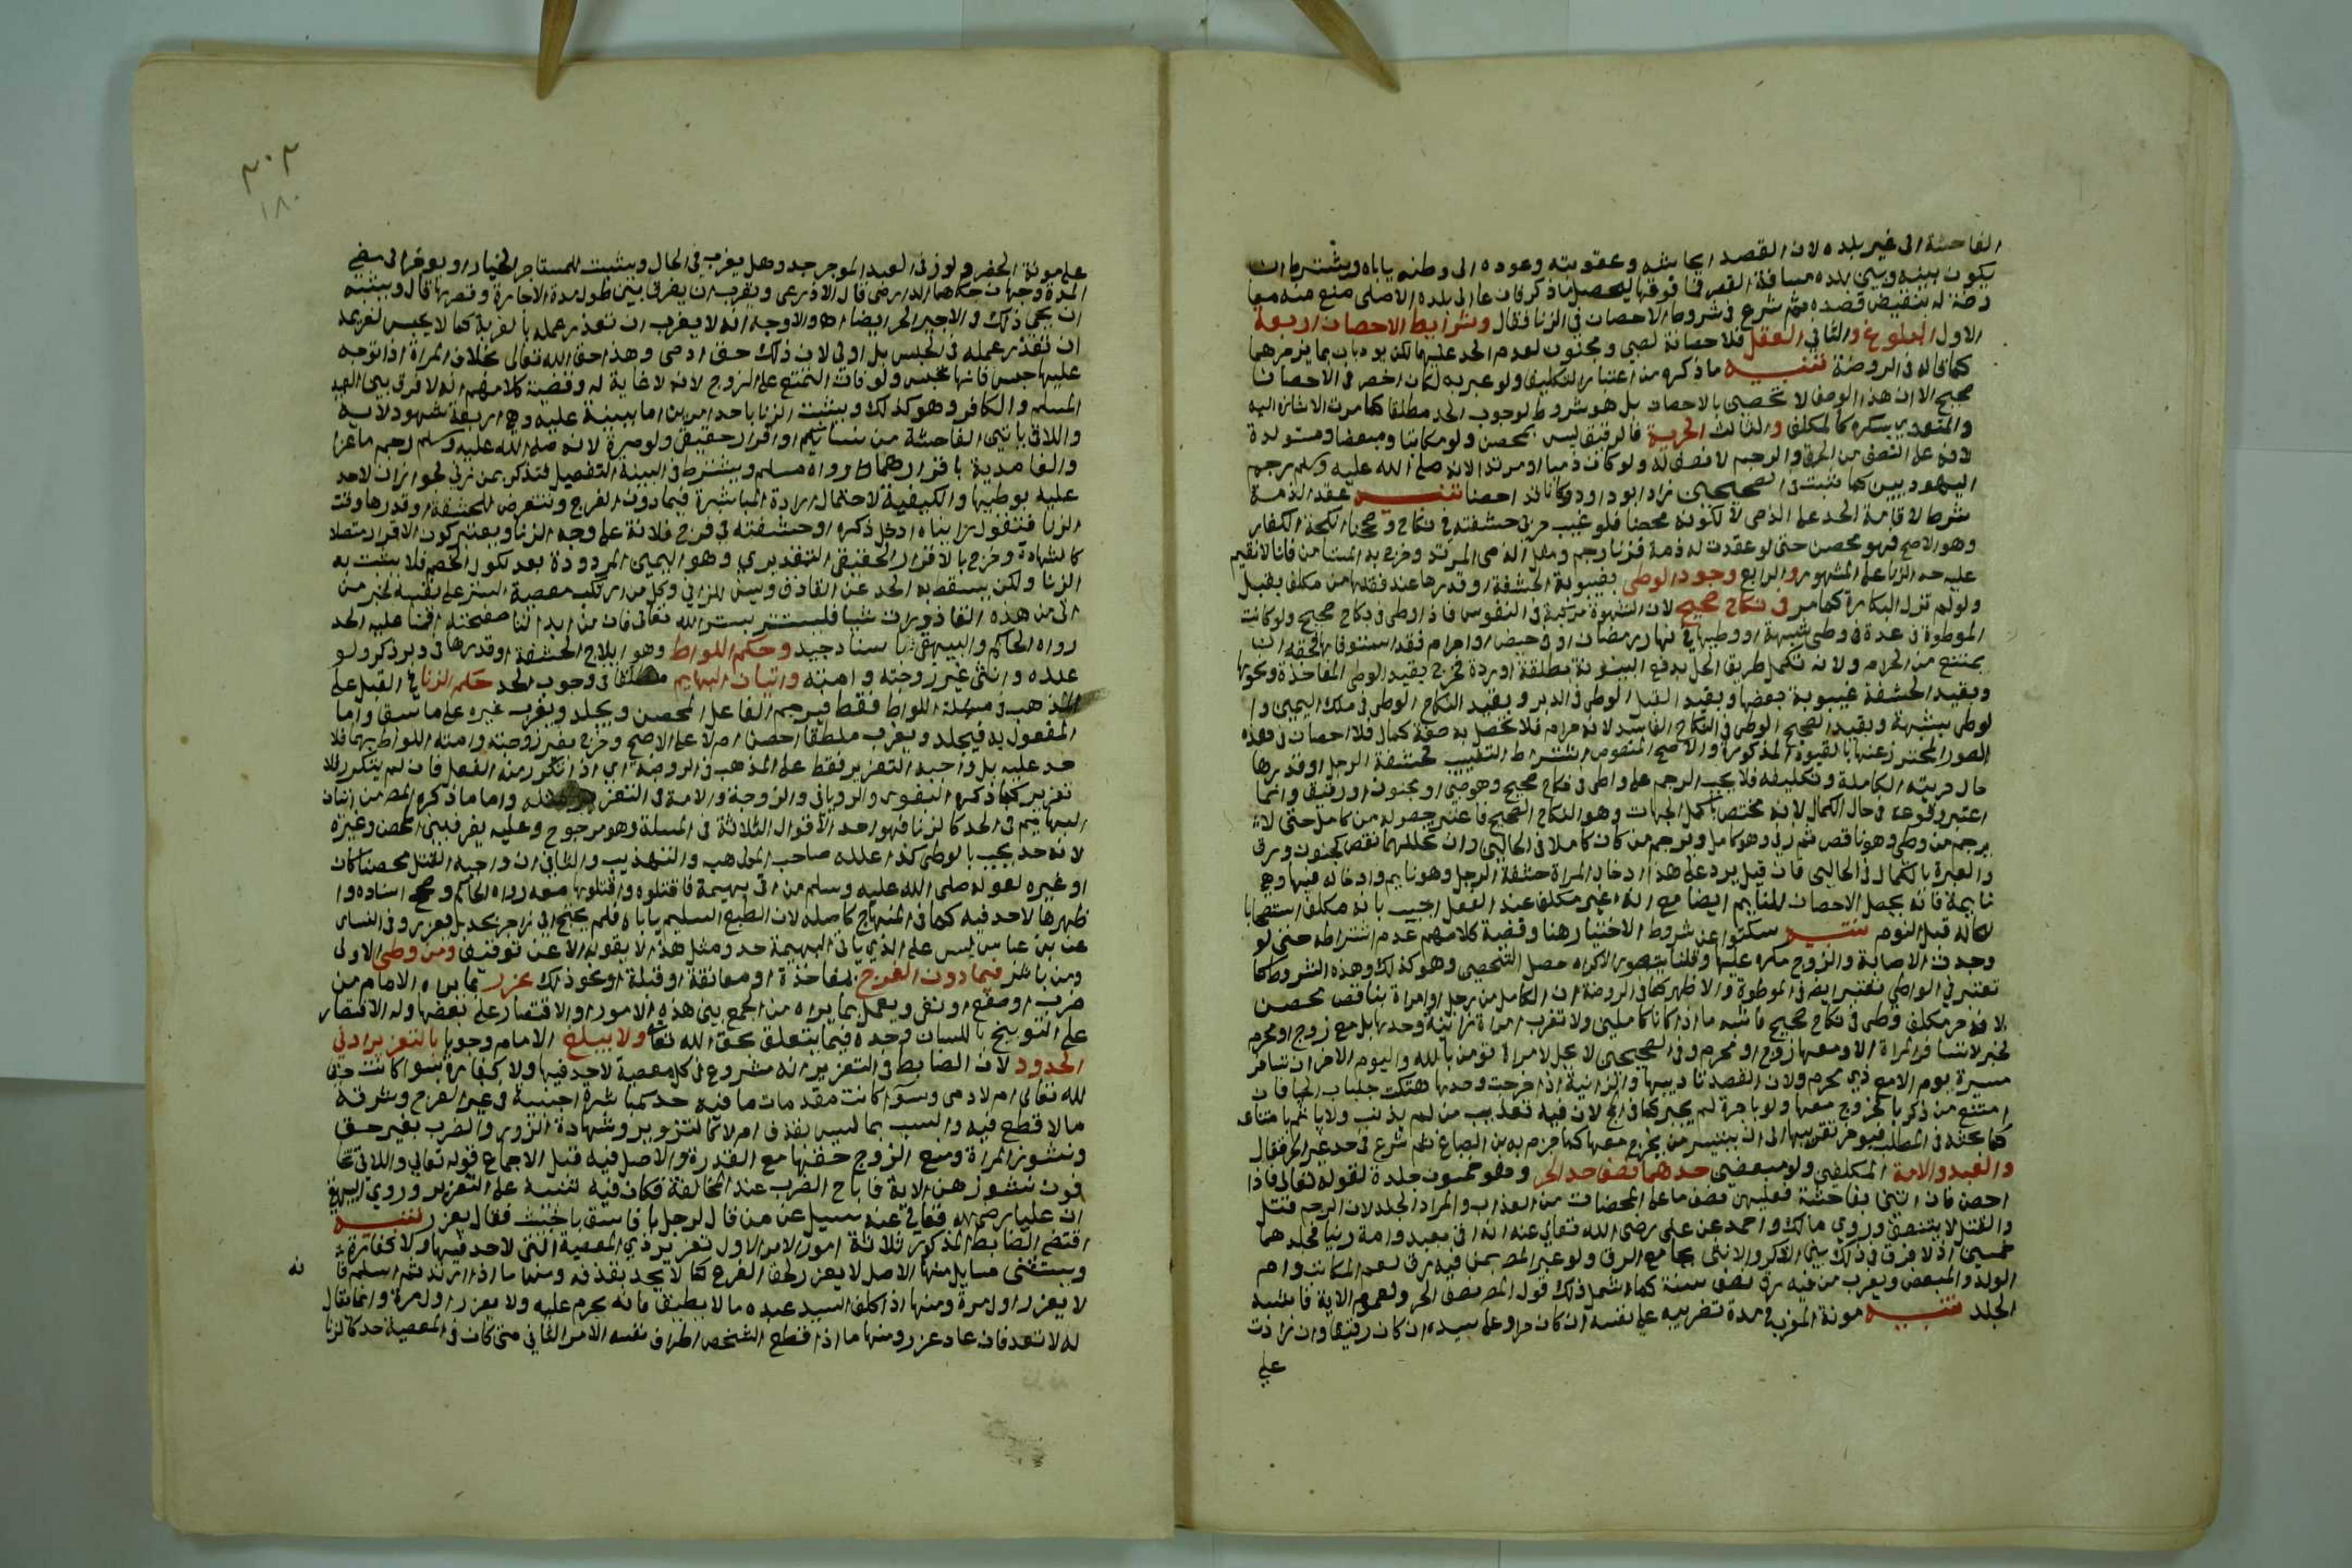 الفاحشة الى غير بلده لان القصد ايحاشه وعقوبته وعوده الى وطنه ياباه ويشترط ان
يكون بينه وبين بلده مسافة القصر فما فوقها ليحصل ما ذكر فان عاد الى بلده الاصلى منع منه معا
رضة له بنقيض قصده ثم شرع فى شروط الاحصان فى الزنا فقال وشرايط الاحصان اربعة
الاول البلوغ والثانى العقل فلا حصانة لصبى ومجنون لعدم الحد عليهما لكن يودبان بما يزجرهما
كما قاله فى الروضة تنبيه ما ذكره من اعتبار التكليف ولو عبر به لكان اخصر فى الاحصان
صحيح الا ان هذا الوصف لا يختص بالاحصان بل هو شروط لوجوب الحد مطلقا كما مرت الاشارة اليه
والمتعدى بسكره كالمكلف والثالث الحرية فالرقيق ليس بمحصن ولو مكاتبا ومبعضا ومستولدة
لانه على النصف من الحر والرجم لا نصف له ولو كان ذميا او مرتدا لانه صلى الله عليه وسلم رجم
اليهوديين كما ثبت فى الصحيحين زاد ابو داود وكانا قد احصنا تنبيه عقد الذمة
شرط لاقامة الحد على الذمى لا لكونه محصنا فلو غيب حربى حشفته فى نكاح وصححنا انكحة الكفار
وهو الاصح فهو محصن حتى لو عقدت له ذمة فزنا رجم ومثل الذمى المرتد وخرج به المستامن فانا لا نقيم
عليه حد الزنا على المشهور والرابع وجود الوطى بغيبوبة الحشفة او قدرها عند فقدها من مكلف بقبل
ولو لم تزل البكارة كما مر فى نكاح صحيح لان الشهوة مركبة فى النفوس فاذا وطى فى نكاح صحيح ولو كانت
الموطوة فى عدة فى وطى شبهة او وطيها فى نهار رمضان او فى حيض او احرام فقد استوفاها فحقه ان
يمتنع من الحرام ولانه تكمل طريق الحل بدفع البينونة بطلقة او ردة فخرج بقيد الوطى المفاخذة ونحوها
وبقيد الحشفة غيبوبة بعضها وبقيد القبل الوطى فى الدبر وبقيد النكاح الوطى فى ملك اليمين وا
لوطى بشبهة وبقيد الصحيح الوطى فى النكاح الفاسد لانه حرام فلا تحصل به صفة كمال فلا احصان فى هذه
الصور المحترز عنها بالقيود المذكورة والاصح المنصوص اشتراط التغييب لحشفة الرجل او قدرها
حال حريته الكاملة وتكليفه فلا يجب الرجم على واطى فى نكاح صحيح وهو صبى او مجنون او رقيق وانما
اعتبر وقوعه فى حال الكمال لانه مختص باكمل الجهات وهو النكاح الصحيح فاعتبر حصوله من كامل حتى لا
يرجم من وطى وهو ناقص ثم زنى وهو كامل ويرجم من كان كاملا فى الحالين وان تخللهما نقص كجنون ورق
والعبرة بالكمال فى الحالين فان قيل يرد على هذا ادخال المراة حشفة الرجل وهو نايم وادخاله فيها وهى
نايمة فانه يحصل الاحصان للنايم ايضا مع انه غير مكلف عند الفعل اجيب بانه مكلف استصحابا
لحاله قبل النوم تنبيه سكتوا عن شروط الاختيار هنا وقضية كلامهم عدم اشتراطه حتى لو
وجدت الاصابة والزوج مكره عليها وقلنا بتصور الاكراه حصل التحصين وهو كذلك وهذه الشروط كما
تعتبر فى الواطى تعتبر ايضا فى الموطوة والاظهر كما فى الروضة ان الكامل من رجل او امراة بناقص محصن
لانه حر مكلف وطى فى نكاح صحيح فاشبه ما اذا كانا كاملين ولا تغرب امراة زانية وحدها بل مع زوج او محرم
لخبر لا تسافر المراة الا ومعها زوج او محرم وفى الصحيحين لا يحل لامراة تومن بالله واليوم الاخر ان تسافر
مسيرة يوم الا مع ذى محرم ولان القصد تاديبها والزانية اذا خرجت وحدها هتكت جلباب الحيا فان
امتنع من ذكر بالخروج معها ولو باجرة لم يجبر كما فى الحج لان فيه تعذيب من لم يذنب ولا ياثم بامتناعه
كما بحثه فى المطلب فيوخر تغريبها الى ان يتيسر من يخرج معها كما جزم به بن الصباغ ثم شرع فى حد غير الحر فقال
والعبد والامة المكلفين ولو مبعضين حدهما نصف حد الحر وهو خمسون جلدة لقوله تعالى فاذا
احصن فان اتين بفاحشة فعليهن نصف ما على المحصنات من العذاب والمراد الجلد لان الرجم قتل
والقتل لا يتنصف وروى مالك واحمد عن على رضى الله تعالى عنه انه اتى بعبد وامة زنيا فجلدهما
خمسين اذ لا فرق فى ذلك بين الذكر والانثى بجامع الرق ولو عبر المص بمن فيه رق لعم المكاتب وام
الولد والمبعض ويغرب من فيه رق نصف سنة كما شمل ذلك قول المص نصف الحر ولعموم الاية فاشبه
الجلد تنبيه مونة المغرب فى مدة تغريبه على نفسه ان كان حرا وعلى سيده ان كان رقيقا وان زادت
على
٣٠٢
١٨٠
على مونة الحضر ولو زنى العبد الموجر حد وهل يغرب فى الحال ويثبت للمستاجر الخيار او يوخر الى مضى
المدة وجهان حكاهما الدارمى قال الاذرعى ويقرب ان يفرق بين طول مدة الاجارة وقصرها قال ويشبه
ان يجى ذلك فى الاجير الحر ايضا اه والاوجه انه لا يغرب ان تعذر عمله بالغربة كما لا يحبس لغريمه
ان تعذر عمله فى الحبس بل اولى لان ذلك حق ادمى وهذا حق الله تعالى بخلاف المراة اذا توجه
عليها حبس فانها تحبس ولو فات التمتع على الزوج لانه لا غاية له وقضية كلامهم انه لا فرق بين العبد
المسلم والكافر وهو كذلك ويثبت الزنا باحد امرين اما ببينة عليه وهى اربعة شهود لاية
واللاتى ياتين الفاحشة من نسائكم او اقرار حقيقى ولو مرة لانه صلى الله عليه وسلم رجم ماعزا
والغامدية باقرارهما رواه مسلم ويشترط فى البينة التفصيل فتذكر بمن زنى لجواز ان لا حد
عليه بوطيها والكيفية لاحتمال ارادة المباشرة فيما دون الفرج وتتعرض للحشفة او قدرها وقت
الزنا فتقول رايناه ادخل ذكره او حشفته فى فرج فلانة على وجه الزنا ويعتبر كون الاقرار مفصلا
كالشهادة وخرج بالاقرار الحقيقى التقديرى وهو اليمين المردودة بعد نكول الخصم فلا يثبت به
الزنا ولكن يسقط به الحد عن القاذف ويسن للزانى وكل من ارتكب معصية الستر على نفسه لخبر من
اتى من هذه القاذورات شيا فليستتر بستر الله تعالى فان من ابدا لنا صفحته اقمنا عليه الحد
رواه الحاكم والبيهقى باسناد جيد وحكم اللواط وهو ايلاج الحشفة او قدرها فى دبر ذكر ولو
عبده وانثى غير زوجته وامته واتيان البهايم مطلقا فى وجوب الحد حكم الزنا فى القبل على
المذهب فى مسئلة اللواط فقط فيرجم الفاعل المحصن ويجلد ويغرب غيره على ما سبق واما
المفعول به فيجلد ويغرب مطلقا احصن ام لا على الاصح وخرج بغير زوجته وامته اللواط بهما فلا
حد عليه بل واجبه التعزير فقط على المذهب فى الروضة اى اذا تكرر منه الفعل فان لم يتكرر فلا
تعزير كما ذكره البغوى والرويانى والزوجة والامة فى التعزير مثله واما ما ذكره المص من اتيان
البهايم فى الحد كالزنا فهو احد الاقوال الثلاثة فى المسلة وهو مرجوح وعليه يفرق بين المحصن وغيره
لانه حد يجب بالوطى كذا علله صاحب المهذب والتهذيب والثانى ان واجبه القتل محصنا كان
او غيره لقوله صلى الله عليه وسلم من اتى بهيمة فاقتلوه واقتلوها معه رواه الحاكم وصحح اسناده وا
ظهرها لا حد فيه كما فى المنهاج كاصله لان الطبع السليم ياباه فلم يحتج الى زاجر بحد بل يعزر وفى النسائى
عن بن عباس ليس على الذى ياتى البهيمة حد ومثل هذا لا يقوله الا عن توقيف ومن وطى الاولى
ومن باشر فيما دون الفرج لمفاخذة او معانقة او قبلة او نحو ذلك عزر بما يراه الامام من
ضرب او صفع او نفى ويعمل بما يراه من الجمع بين هذه الامور او الاقتصار على بعضها وله الاقتصار
على التوبيخ باللسان وحده فيما يتعلق بحق الله تعا ولا يبلغ الامام وجوبا بالتعزير ادنى
الحدود لان الضابط فى التعزير انه مشروع فى كل معصية لا حد فيها ولا كفارة سوا كانت حق
لله تعالى ام لادمى وسوا كانت مقدمات ما فيه حد كمباشرة اجنبية فى غير الفرج وسرقة
ما لا قطع فيه والسب بما ليس بقذف ام لا كالتزوير وشهادة الزور والضرب بغير حق
ونشوز المراة ومنع الزوج حقها مع القدرة والاصل فيه قبل الاجماع قوله تعالى واللاتى تخا
فون نشوزهن الاية فاباح الضرب عند المخالفة فكان فيه تنبيه على التعزير وروى البيهقى
ان عليا رضى الله تعالى عنه سيل عن من قال لرجل يا فاسق يا خبيث فقال يعزر تنبيه
اقتضى الضابط المذكور ثلاثة امور الامر الاول تعزير ذى المعصية التى لا حد فيها ولا كفارة
ويستثنى مسايل منها الاصل لا يعزر لحق الفرع كما لا يحد بقذفه ومنها ما اذا ارتد ثم اسلم فا
نه
لا يعزر اول مرة ومنها اذا كلف السيد عبده ما لا يطيق فانه يحرم عليه ولا يعزر اول مرة وانما يقال
له لا تعد فان عاد عزر ومنها ما اذا قطع الشخص اطراف نفسه الامر الثانى متى كان فى المعصية حد كالزنا